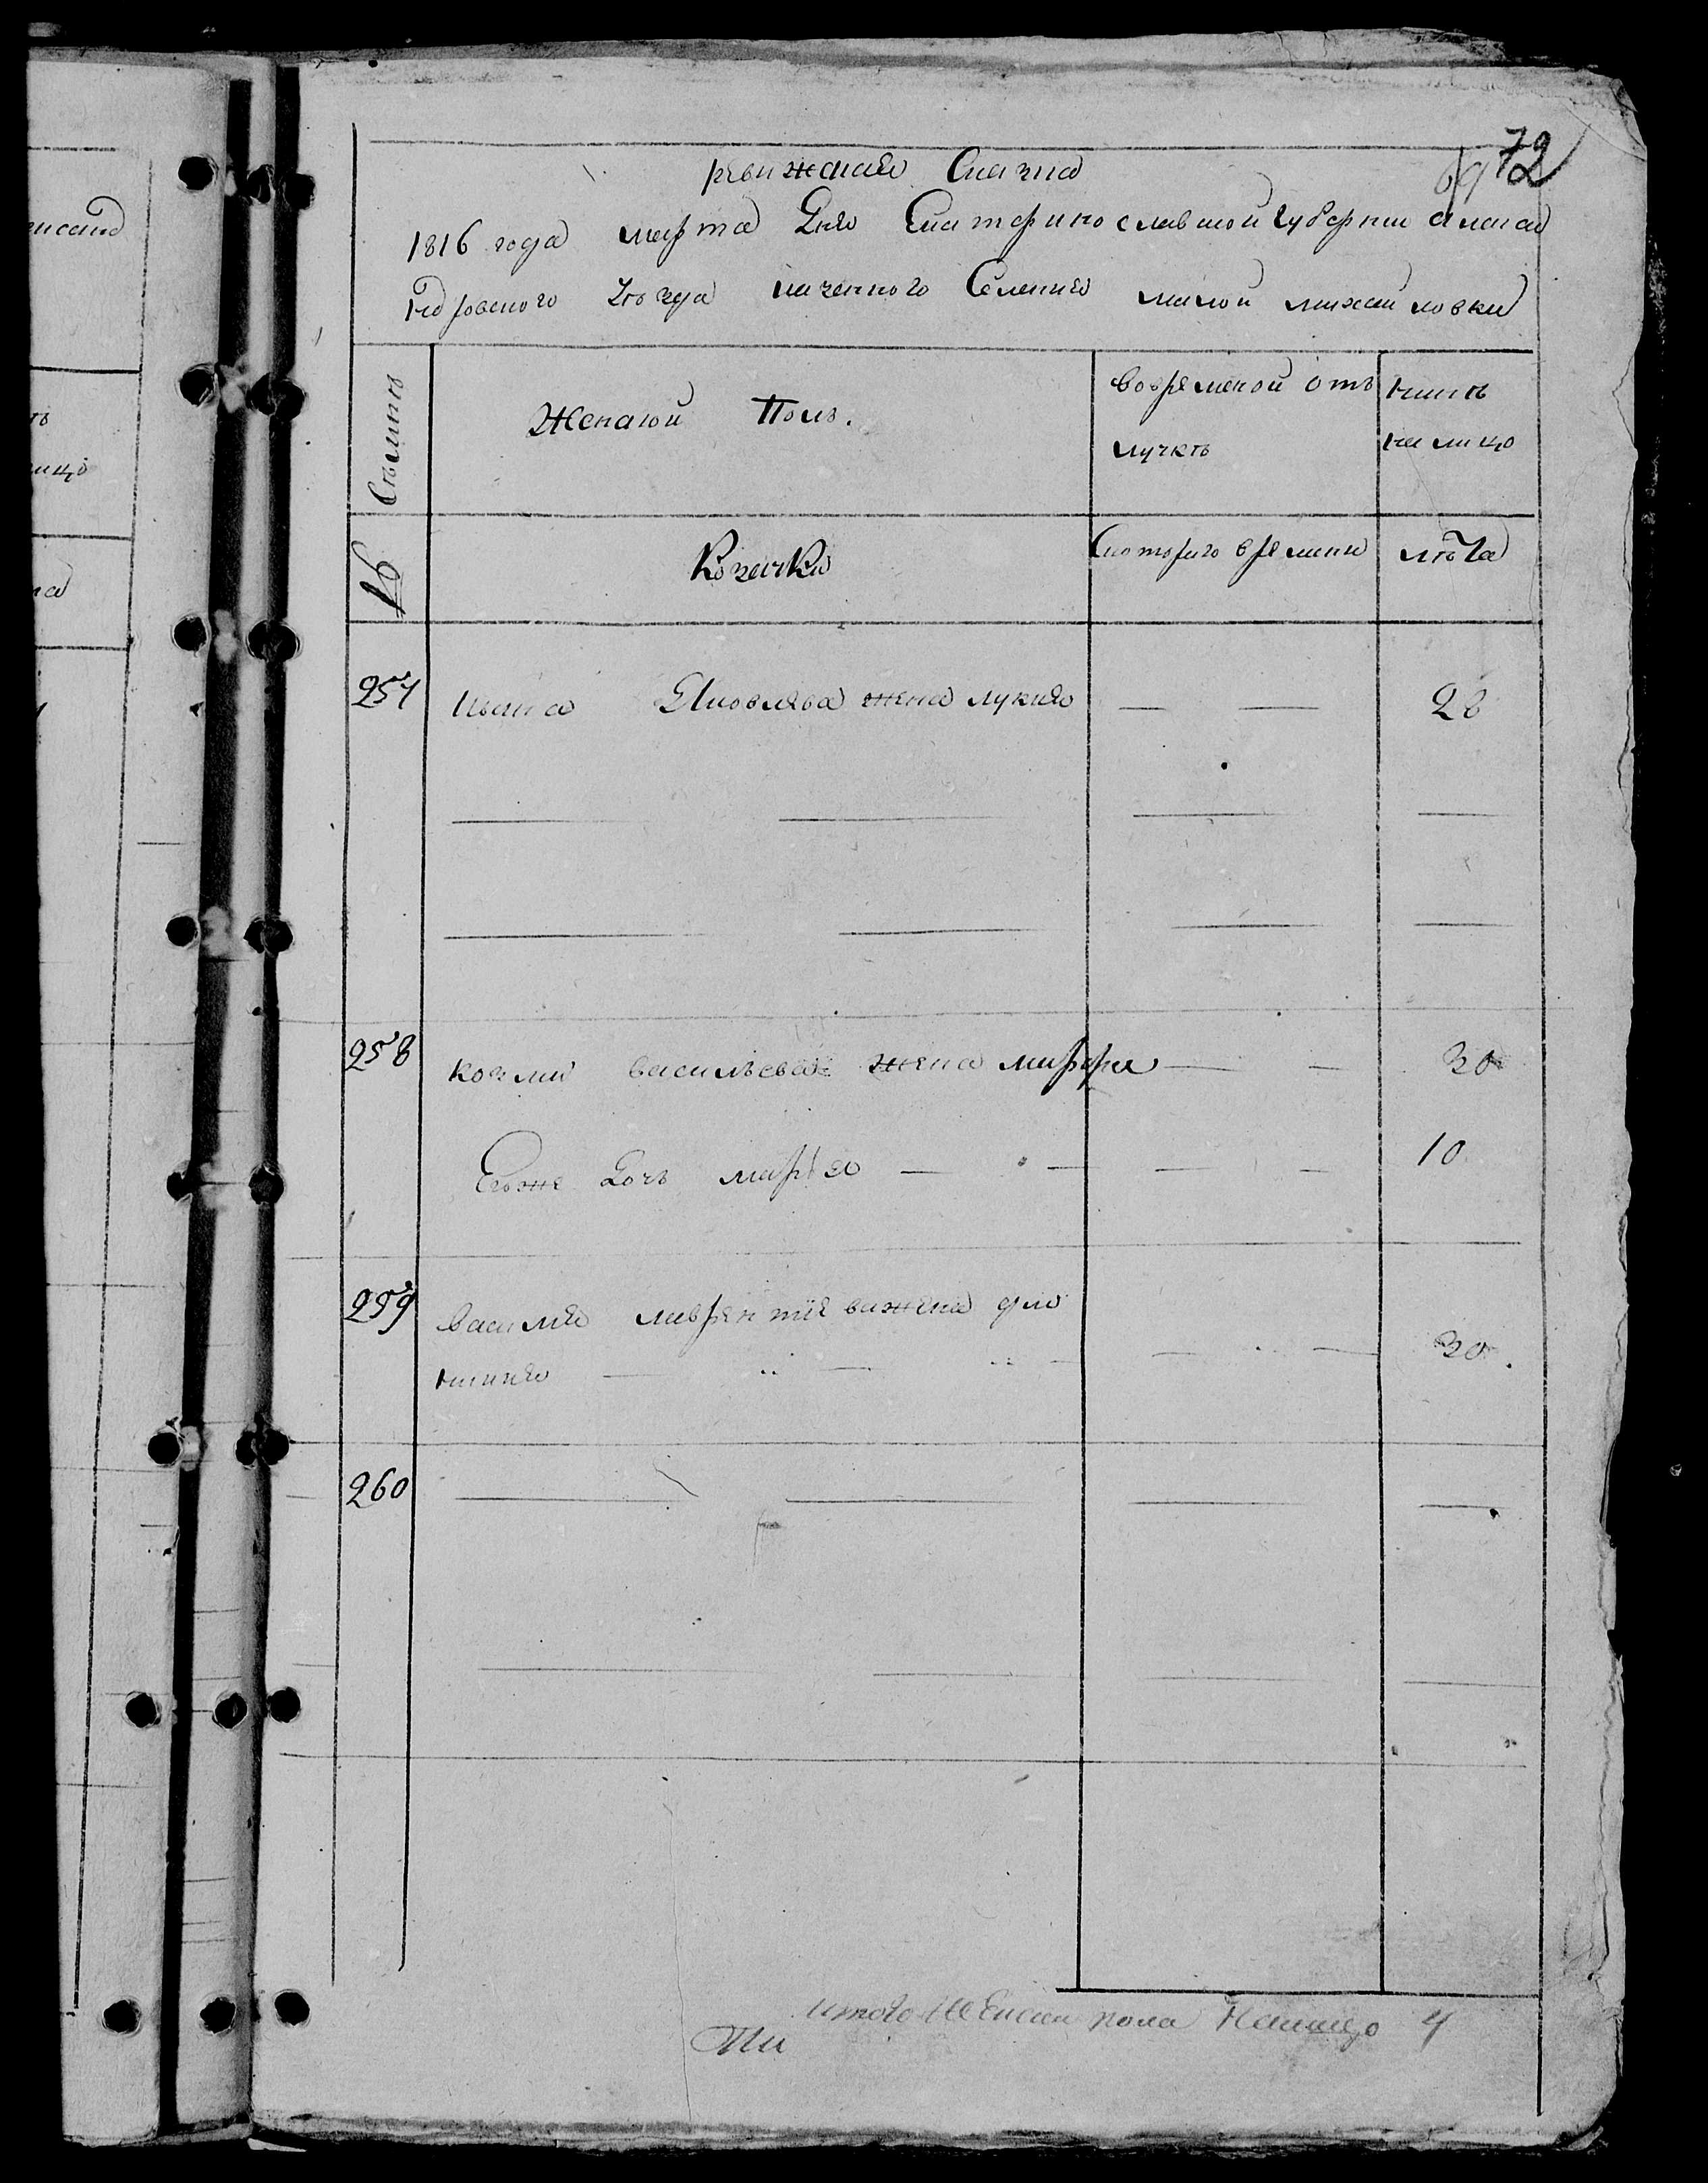 72
69
ревижская Сказка
1816 года марта дня Екатеринославской губернии алекса
ндровского уезда казенного Селения малой михайловки
Семьи
Женской Пол.
Вовременой от
лучке
ныне
на лицо
№
Козачки
Скоторого времени
лета
257 Ивана Яковлева жена лукия — — 28
258 козми васильева жена марфа — — 30
Егоже дочь марья — — — — 10
259 Василия лаврентиева жена фро
— — — — — 30
260
итого Женска пола Налицо 4